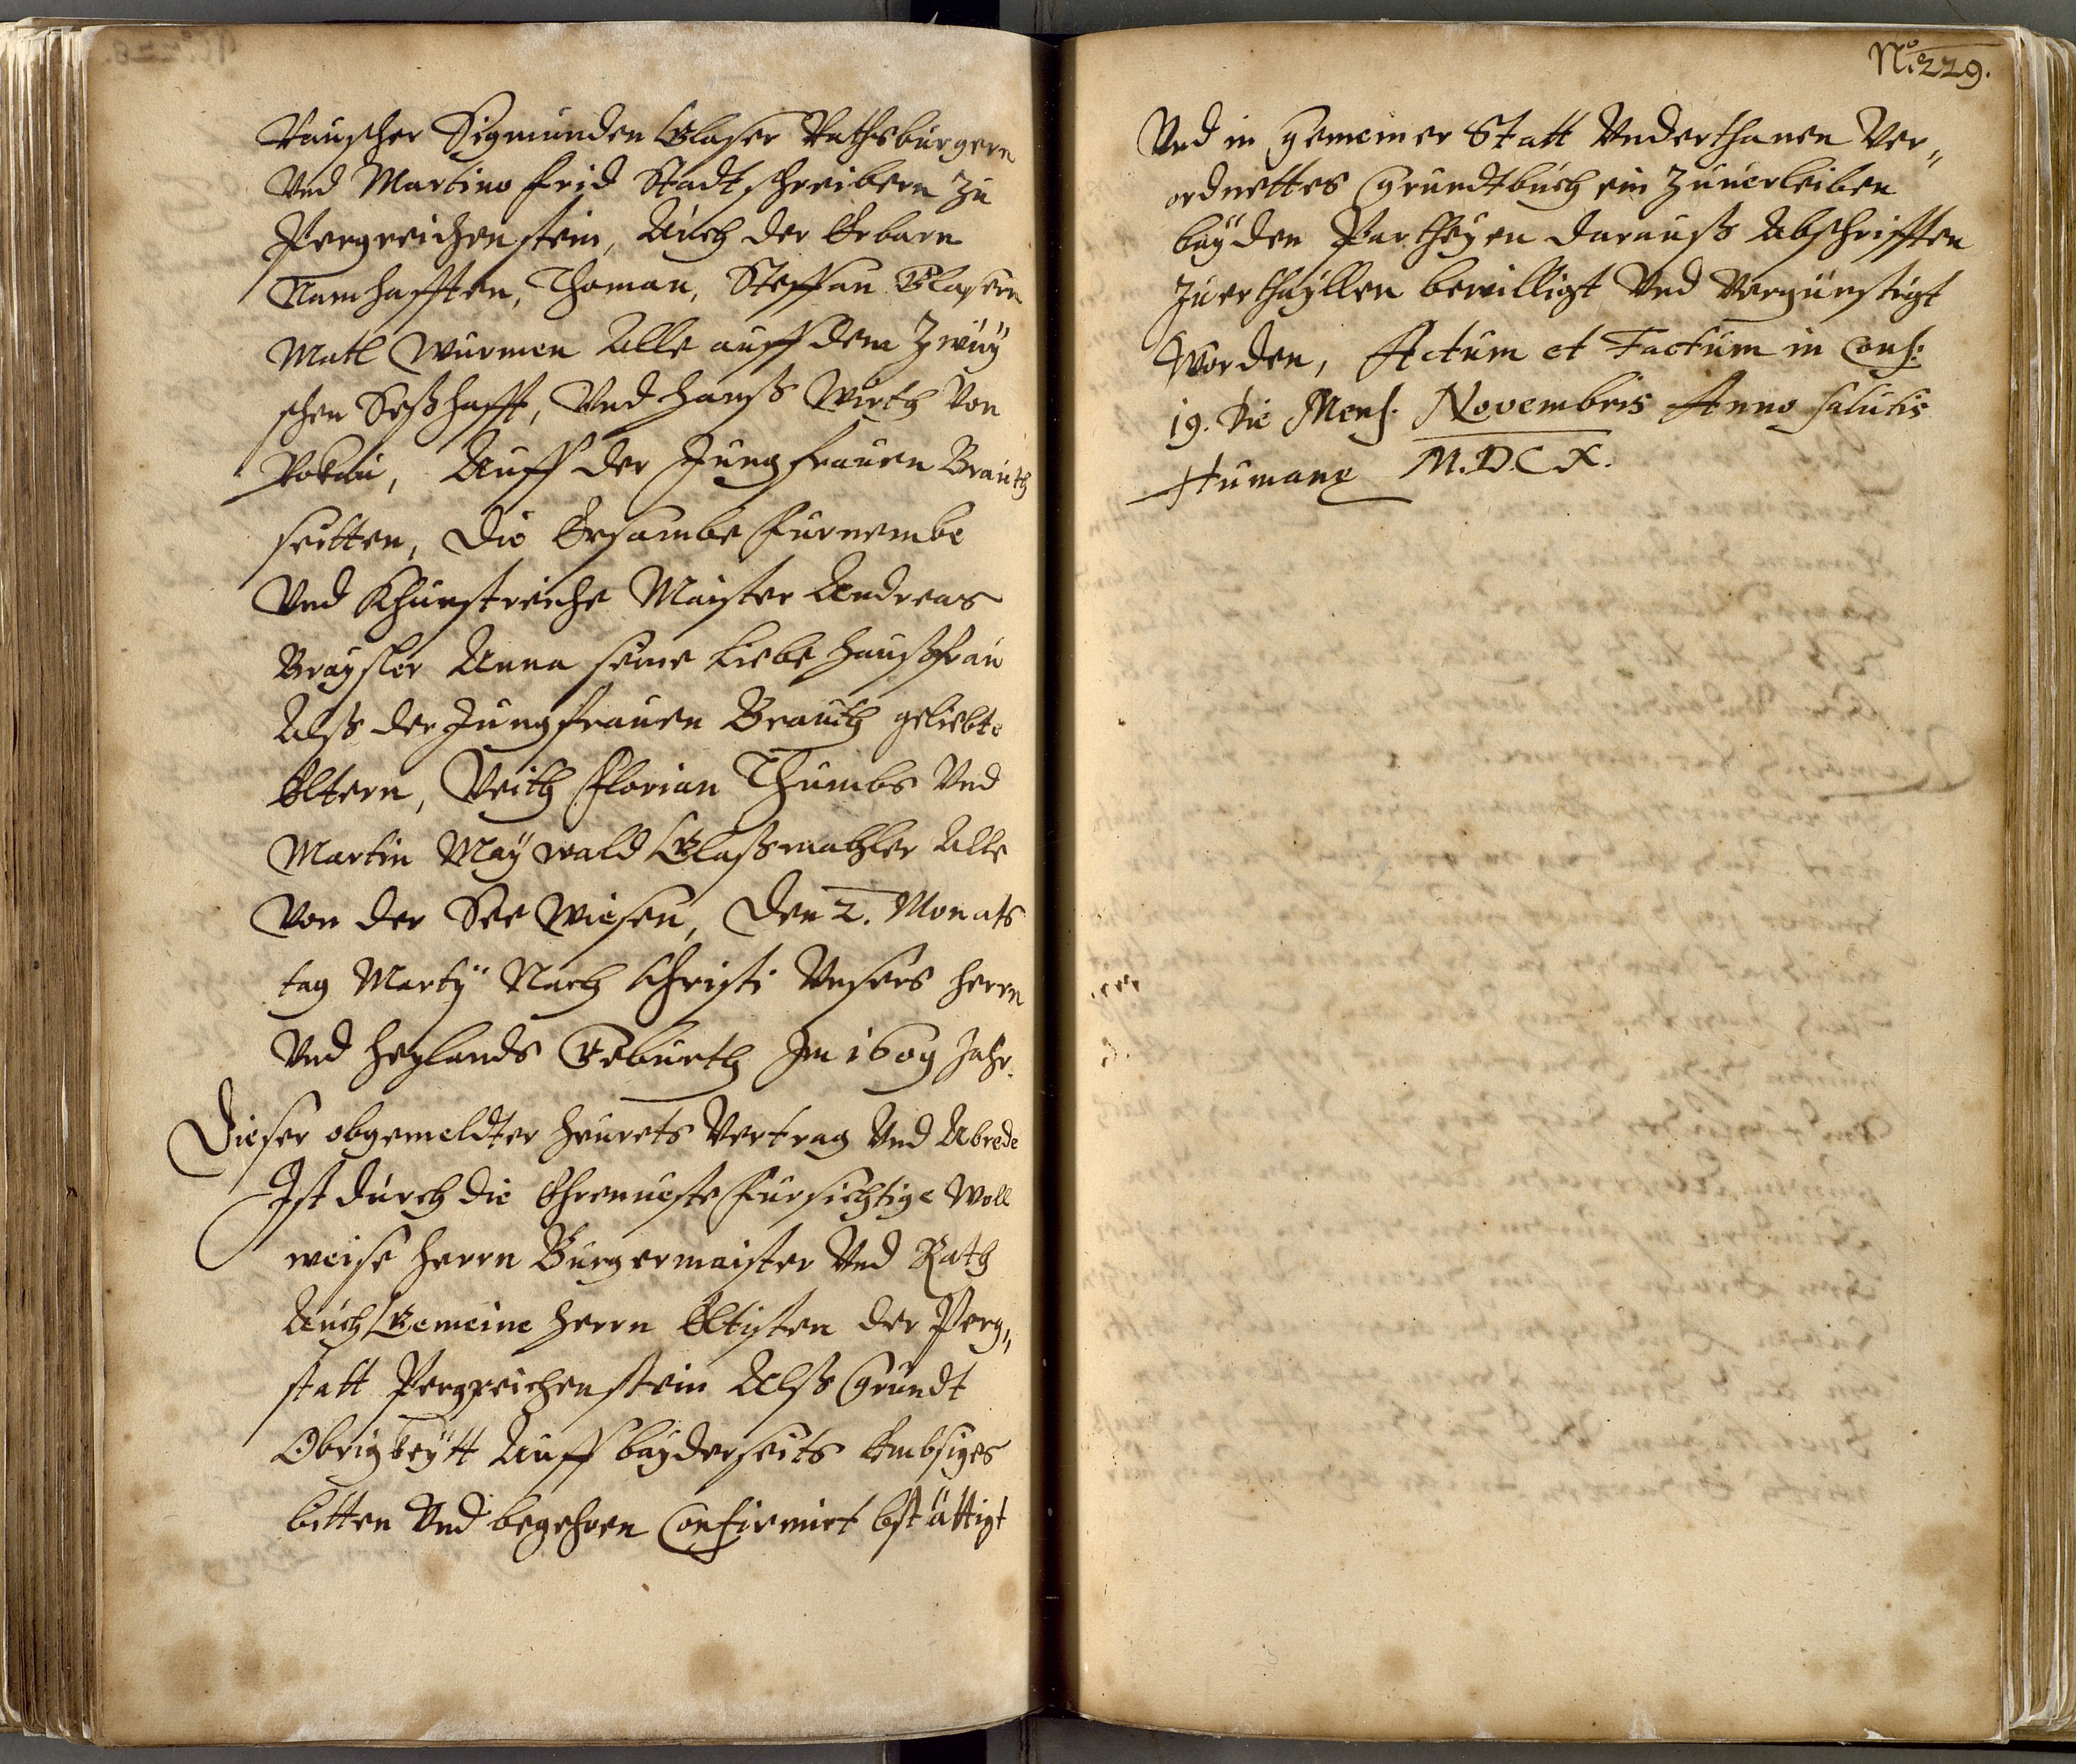 Rauscher Sigmunden Glaser Rathsburgern
Vnd Martino Frid Stadtschreibern zu
Pergreichenstein, Auch der Erbarn
Namhafften, Thoman, Steffan Glasern
Matl Wurmen Alle auff dem Zwuy
schen Seßhafft, Vnd Hanß Wirth Von
Auff der Jungfrauen Brauth
seitten, Die Ersambe Furnembe
Vnd Khunstreiche Maister Andreas
Anna seine liebe Haußfrau
Alß der Jungfrauen Brauth geliebte
Eltern, Veith Florian Thumbs Vnd
Martin Maywald Glaßmahler Alle
Von der See Wiesen, Den 2. Monats
tag Marty Nach Christi Unsers Herrn
Vnd Heylands Geburth Im 1609 Jahr.
Dieser obgemeldter Heurets Vertrag Vnd Abrede
Ist durch die Ehrnueste Fursichtige Woll
weise Herrn Burgermaister Vnd Rath
Auch Gemeine Herrn Eltisten der Perg„
statt Pergreichenstein Alß Grundt
Obrigkeytt Auff bayderseits Embsiges
bitten Vnd begehren Confirmirt bstättigt
No. 229.
Vnd in gemeiner Statt Vnderthanen Ver„
ordnettes Grundtbuch ein Zuuerleiben
bayden Partheyen darauß Abschrifften
Zuerthayllen bewilligt Vnd Vergünstigt
Worden, Actum et Factum in Cons:
19. Die Mens. Novembris Anno salutis
Humanę M.D.C X.